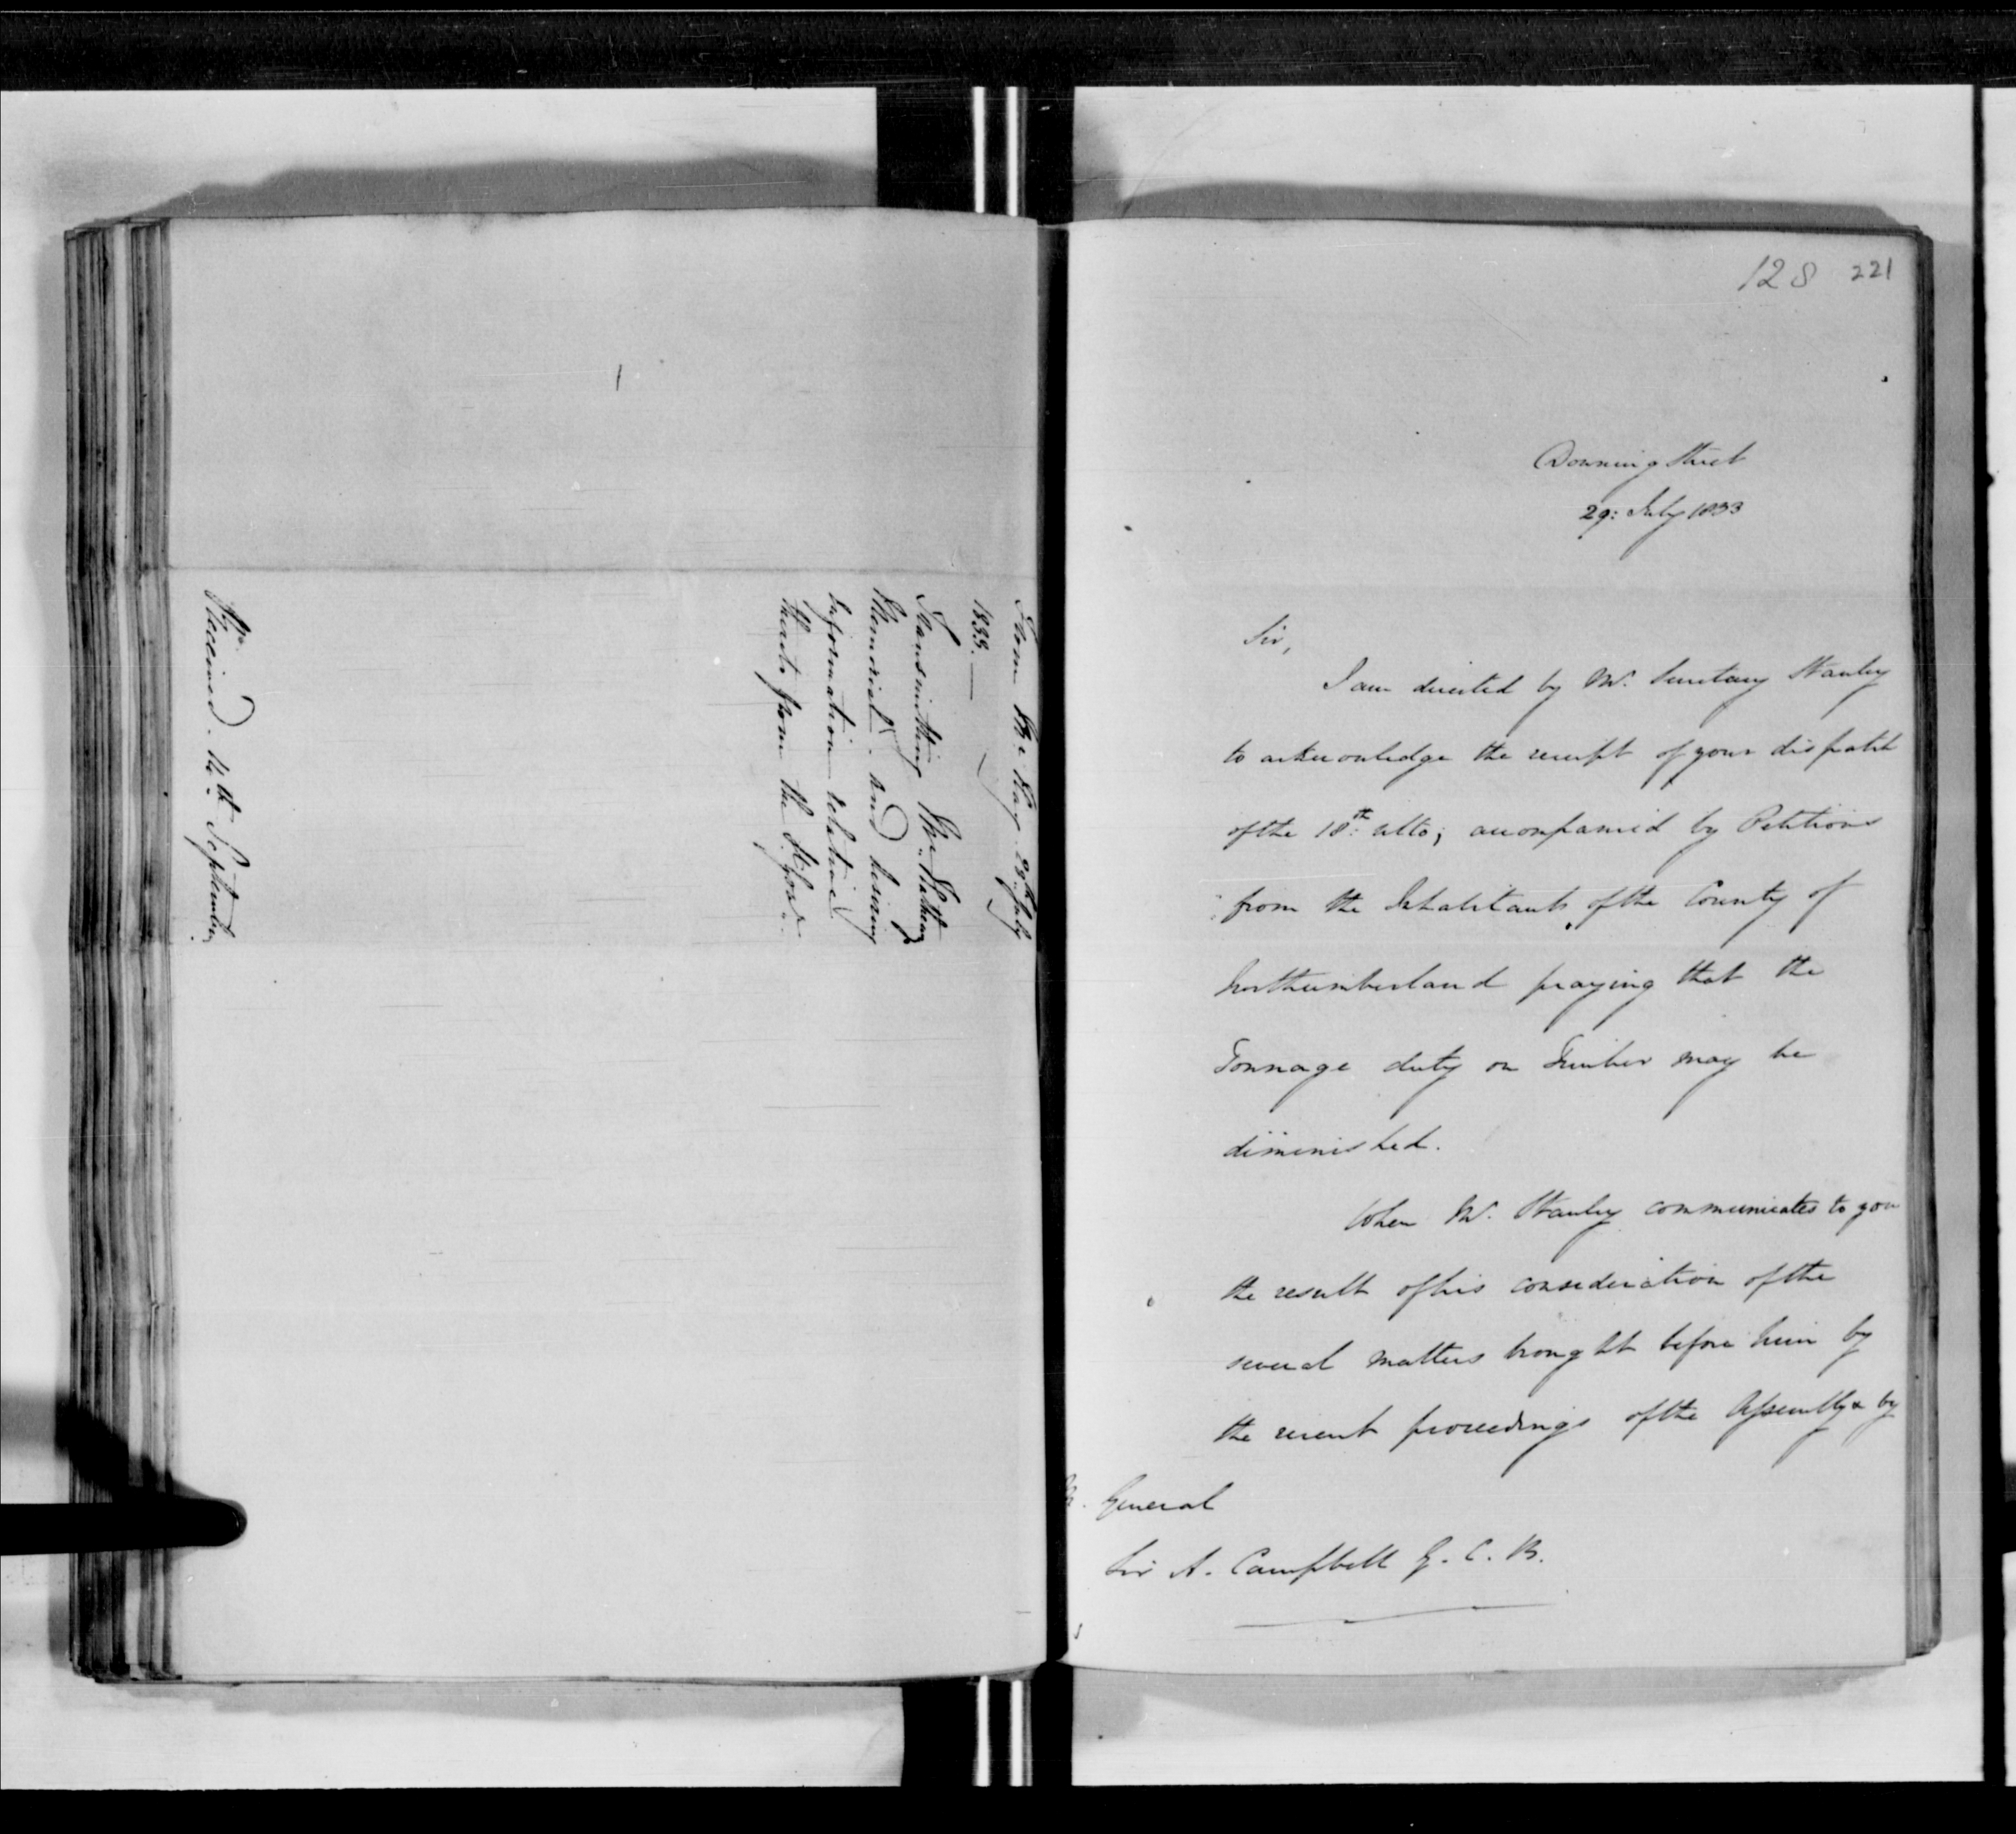 From Mr. Hay 29th July
1833.—
Transmitting Mr.
Memorial. and desiring
information relative
thereto from the
Received. 14th September
128 221
Downing Street
29: July 1833
Sir,
I am directed by Mr. Secretary Stanley
to acknowledge the receipt of your dispatch
of the 18th: ulto; accompanied by Petitions
from the Inhabitants of the County of
Northumberland praying that the
Tonnage duty on Timber may be
diminished.
When Mr. Stanley communicates to you
the result of his consideration of the
several matters brought before him by
the recent proceedings of the Assembly & by
General
Sir A. Campbell G. C. B.